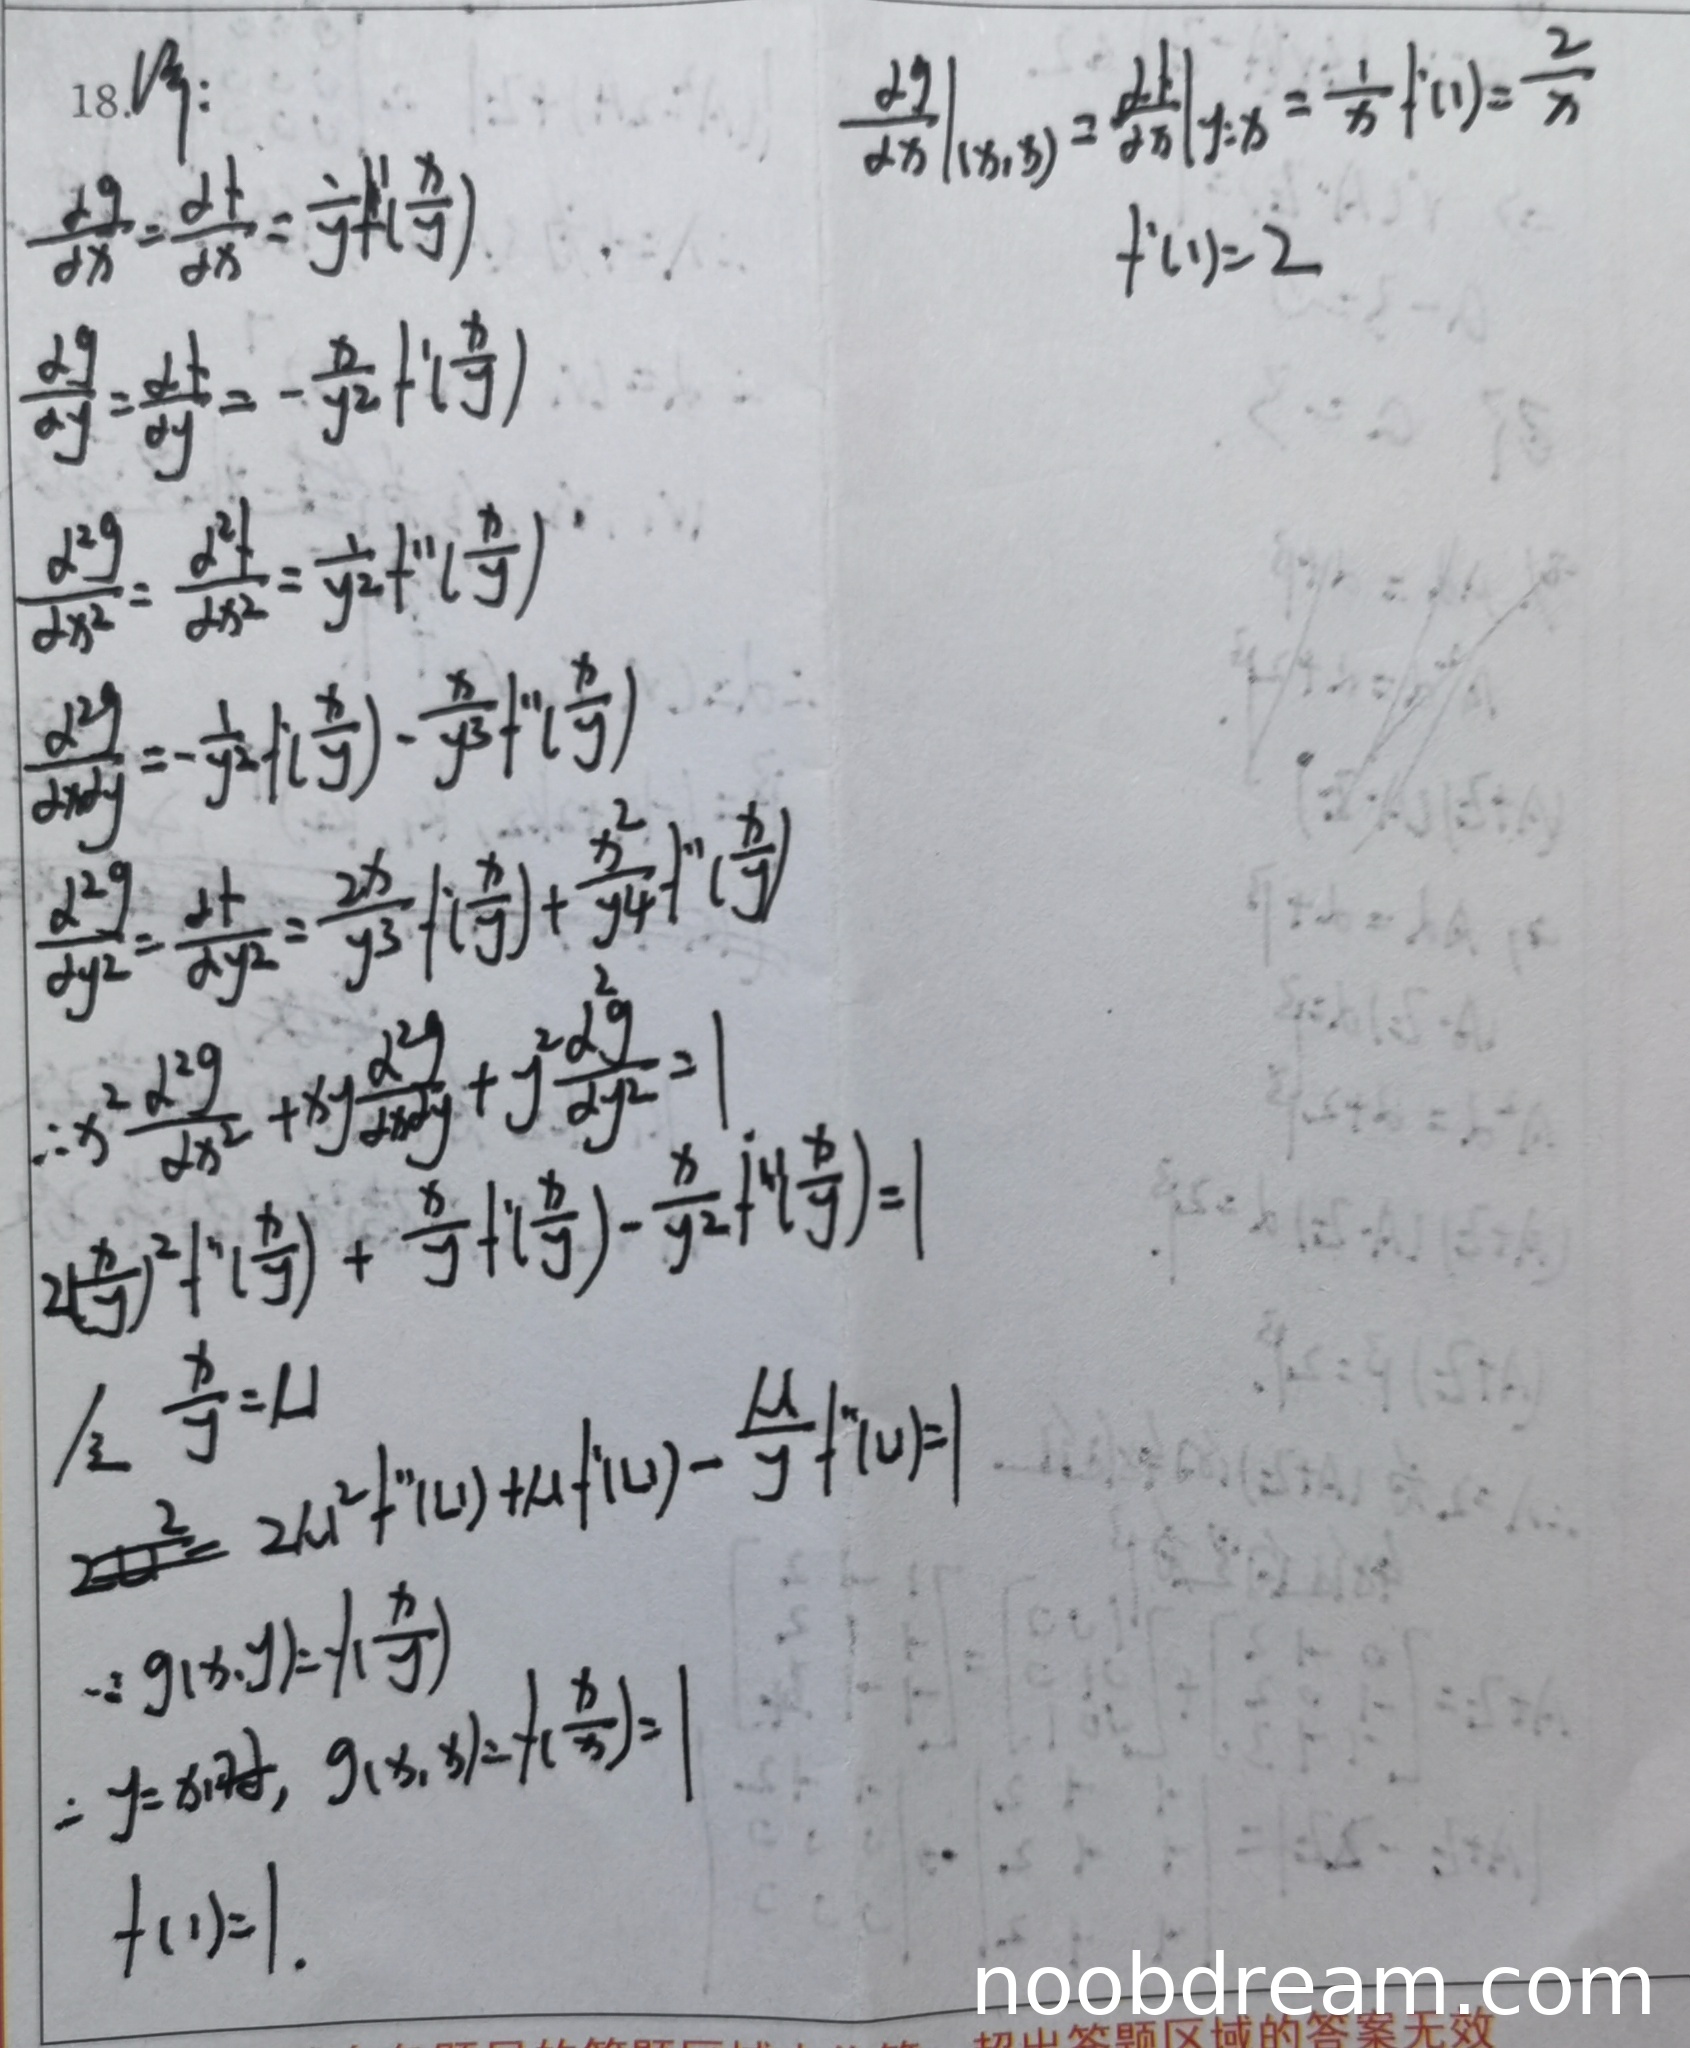 18. 解:
dg/dx = df/dx = 1/y f'(x/y)
dg/dy = df/dy = - x/y² f'(x/y)
d²g/dx² = d²f/dx² = 1/y² f''(x/y)
d²g/dxdy = - 1/y² f'(x/y) - x/y³ f''(x/y)
d²g/dy² = df/dy² = 2x/y³ f'(x/y) + x²/y4 f''(x/y)
∴ x² d²g/dx² + xy d²g/dxdy + y² d²g/dy² = 1
2(x/y)² f''(x/y) + x/y f'(x/y) - x/y² f''(x/y) = 1
令 x/y = u
2u² f''(u) + u f'(u) - u/y f''(u) = 1
∵ g(x,y) = f(x/y)
∴ y = x时, g(x,x) = f(x/x) = 1
f(1) = 1.
dg/dx|(x,x) = df/dx|y=x = 1/x f'(1) = 2/x
f'(1) = 2
noobdream.com
超出答题区域的答案无效